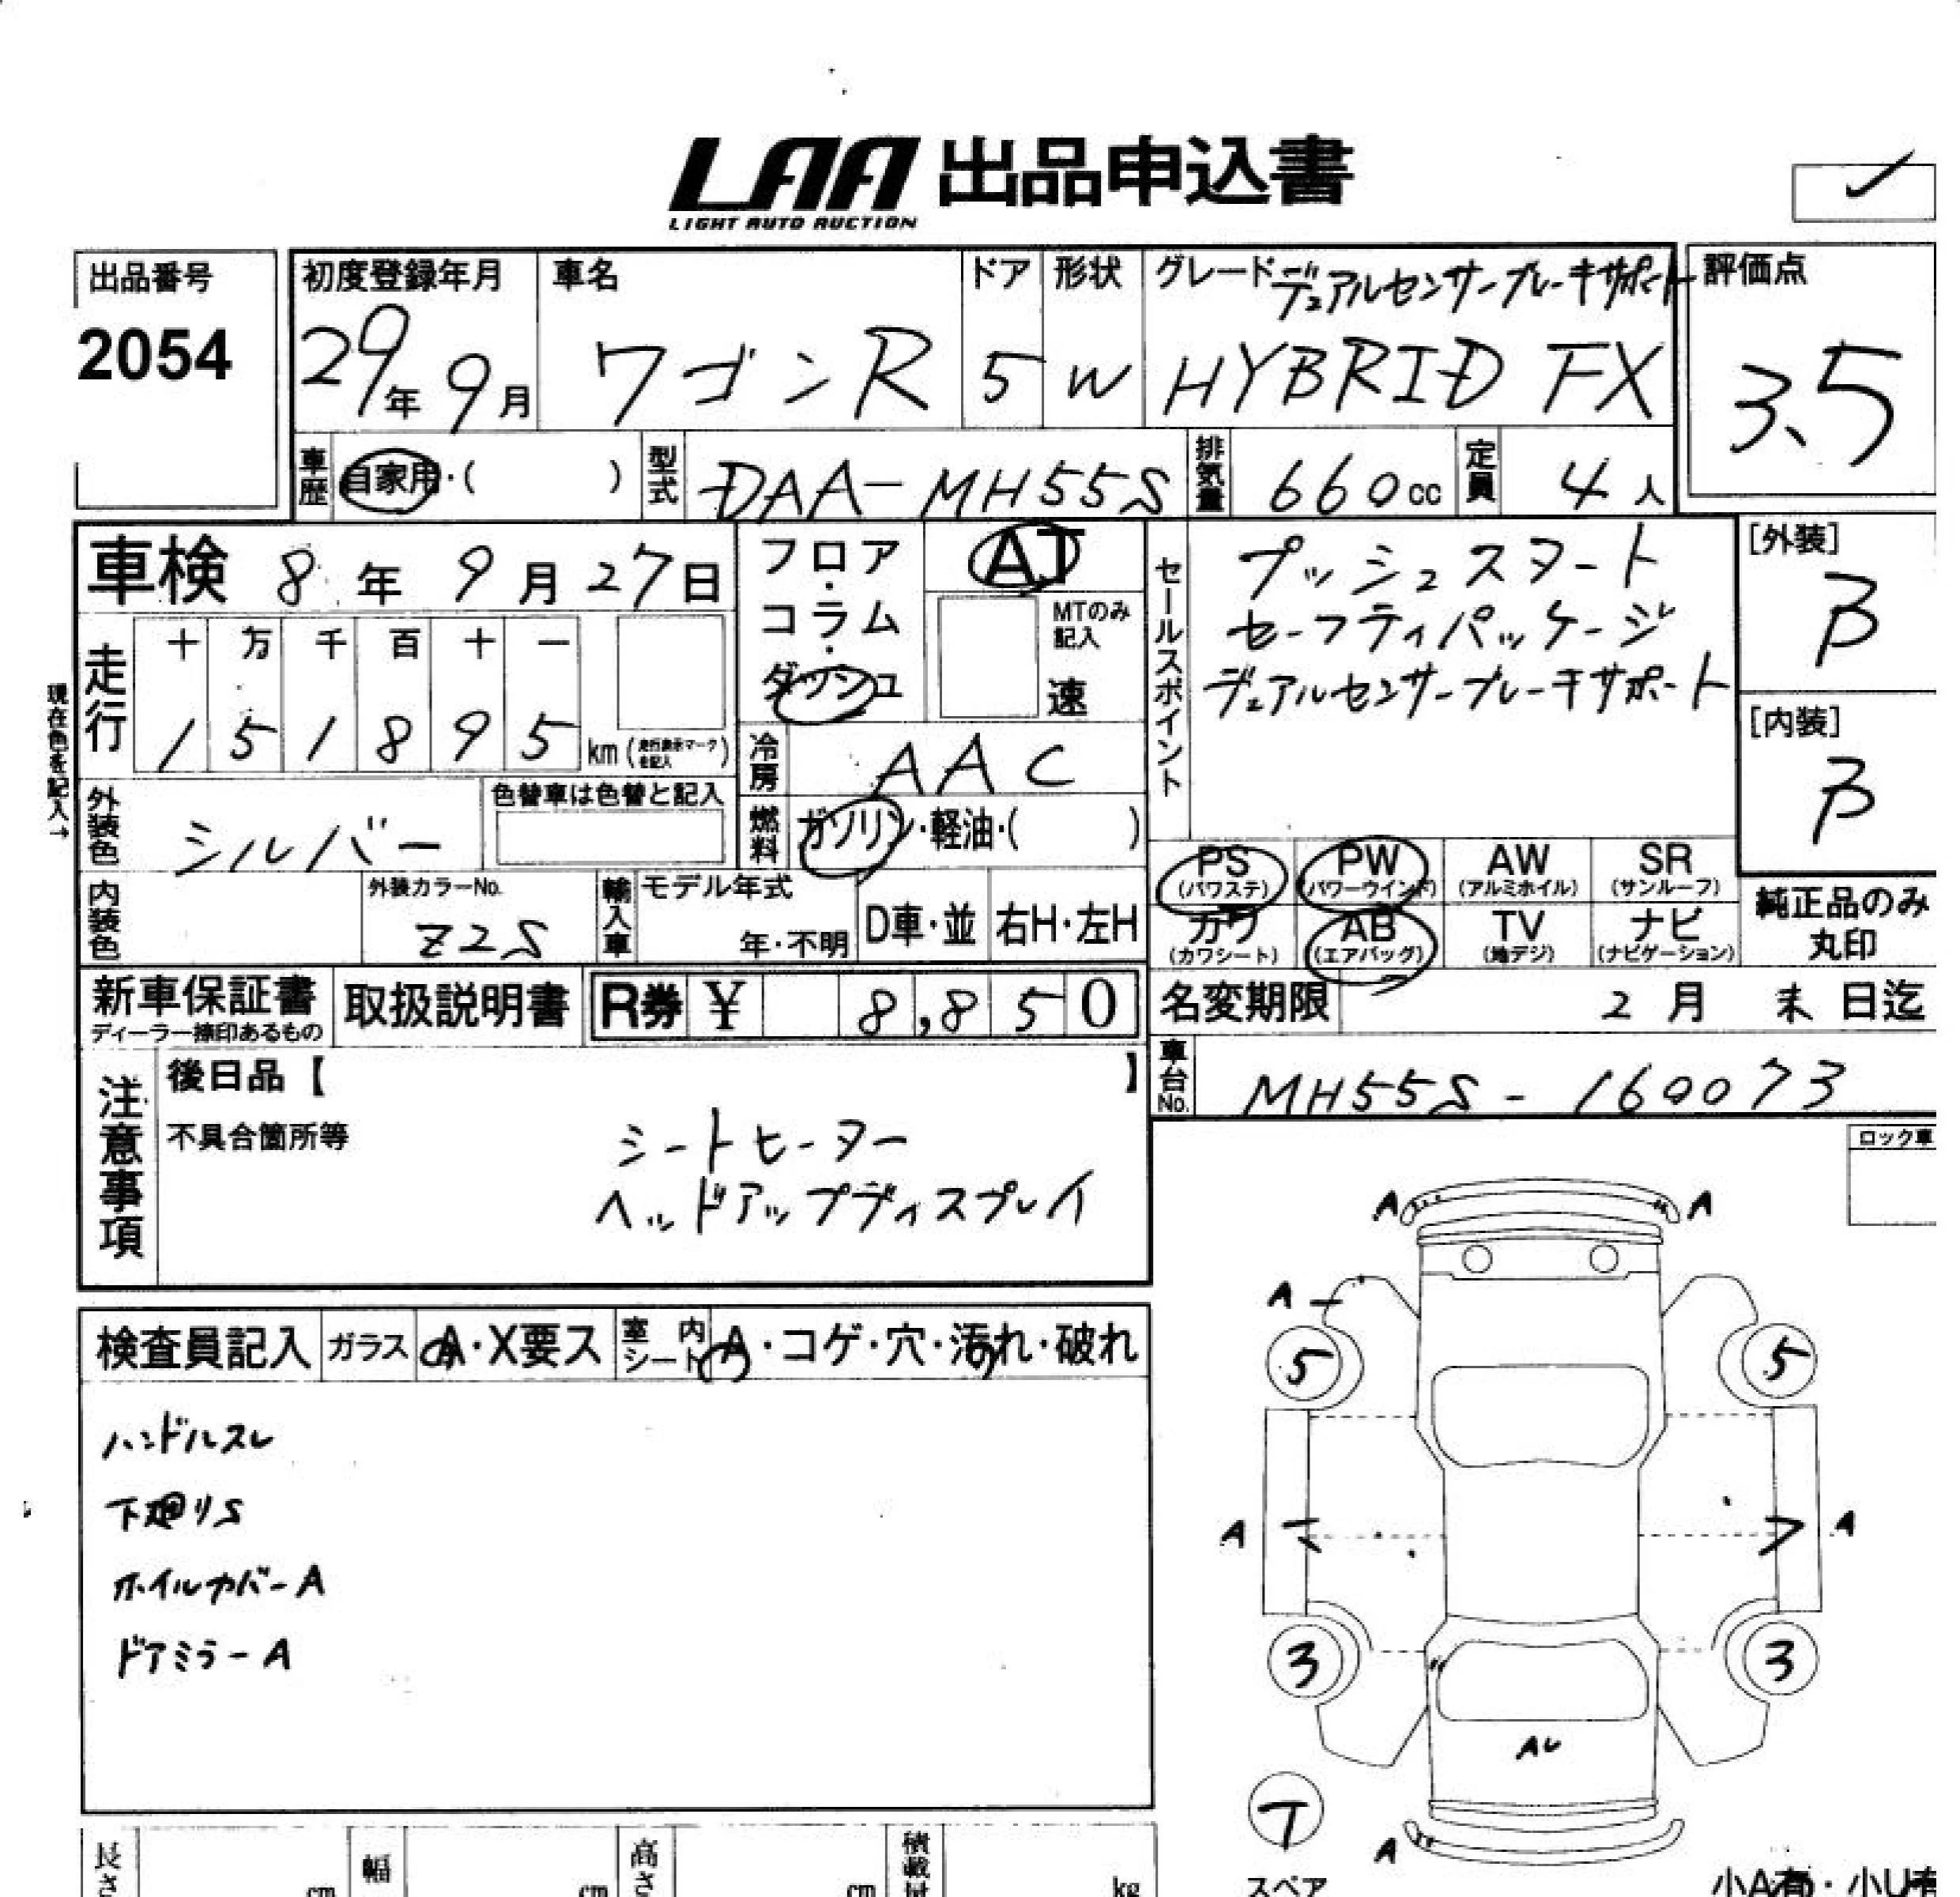 LAA 出品申込書
LIGHT AUTO AUCTION
出品番号
2054
初度登録年月
29年 9月
車名
ワゴンR
ドア
5
形状
W
グレード デュアルセンサーブレーキサポート
HYBRID FX
評価点
3.5
車歴 自家用・( )
型式 DAA-MH55S
排気量 660cc
定員 4人
車検 8年 9月 27日
フロア・コラム・ダッシュ
AT
MTのみ記入
速
セールスポイント
プッシュスタート
セーフティパッケージ
デュアルセンサーブレーキサポート
[外装]
B
[内装]
B
現在色を記入→
走行
十 万 千 百 十 一
1 5 1 8 9 5 km (走行表示マークを記入)
冷房 AAC
外装色 シルバー
色替車は色替と記入
燃料 ガソリン・軽油・( )
内装色
外装カラーNo.
Z2S
輸入車
モデル年式
年・不明
D車・並
右H・左H
PS (パワステ)
PW (パワーウインド)
AW (アルミホイル)
SR (サンルーフ)
カワ (カワシート)
AB (エアバッグ)
TV (地デジ)
ナビ (ナビゲーション)
純正品のみ
丸印
新車保証書
ディーラー捺印あるもの
取扱説明書
R券 ¥ 8,850
名変期限 2月 末日迄
車台No. MH55S-160073
注意事項
後日品【 】
不具合箇所等
シートヒーター
ヘッドアップディスプレイ
ロック車
A A
A
5 5
A A
3 3
T
A
スペア
検査員記入 ガラス A・X要ス 室内シート A・コゲ・穴・汚れ・破れ
ハンドルスレ
下廻りS
ホイルカバーA
ドアミラーA
長さ cm 幅 cm 高さ cm 積載量 kg
小A有・小U有